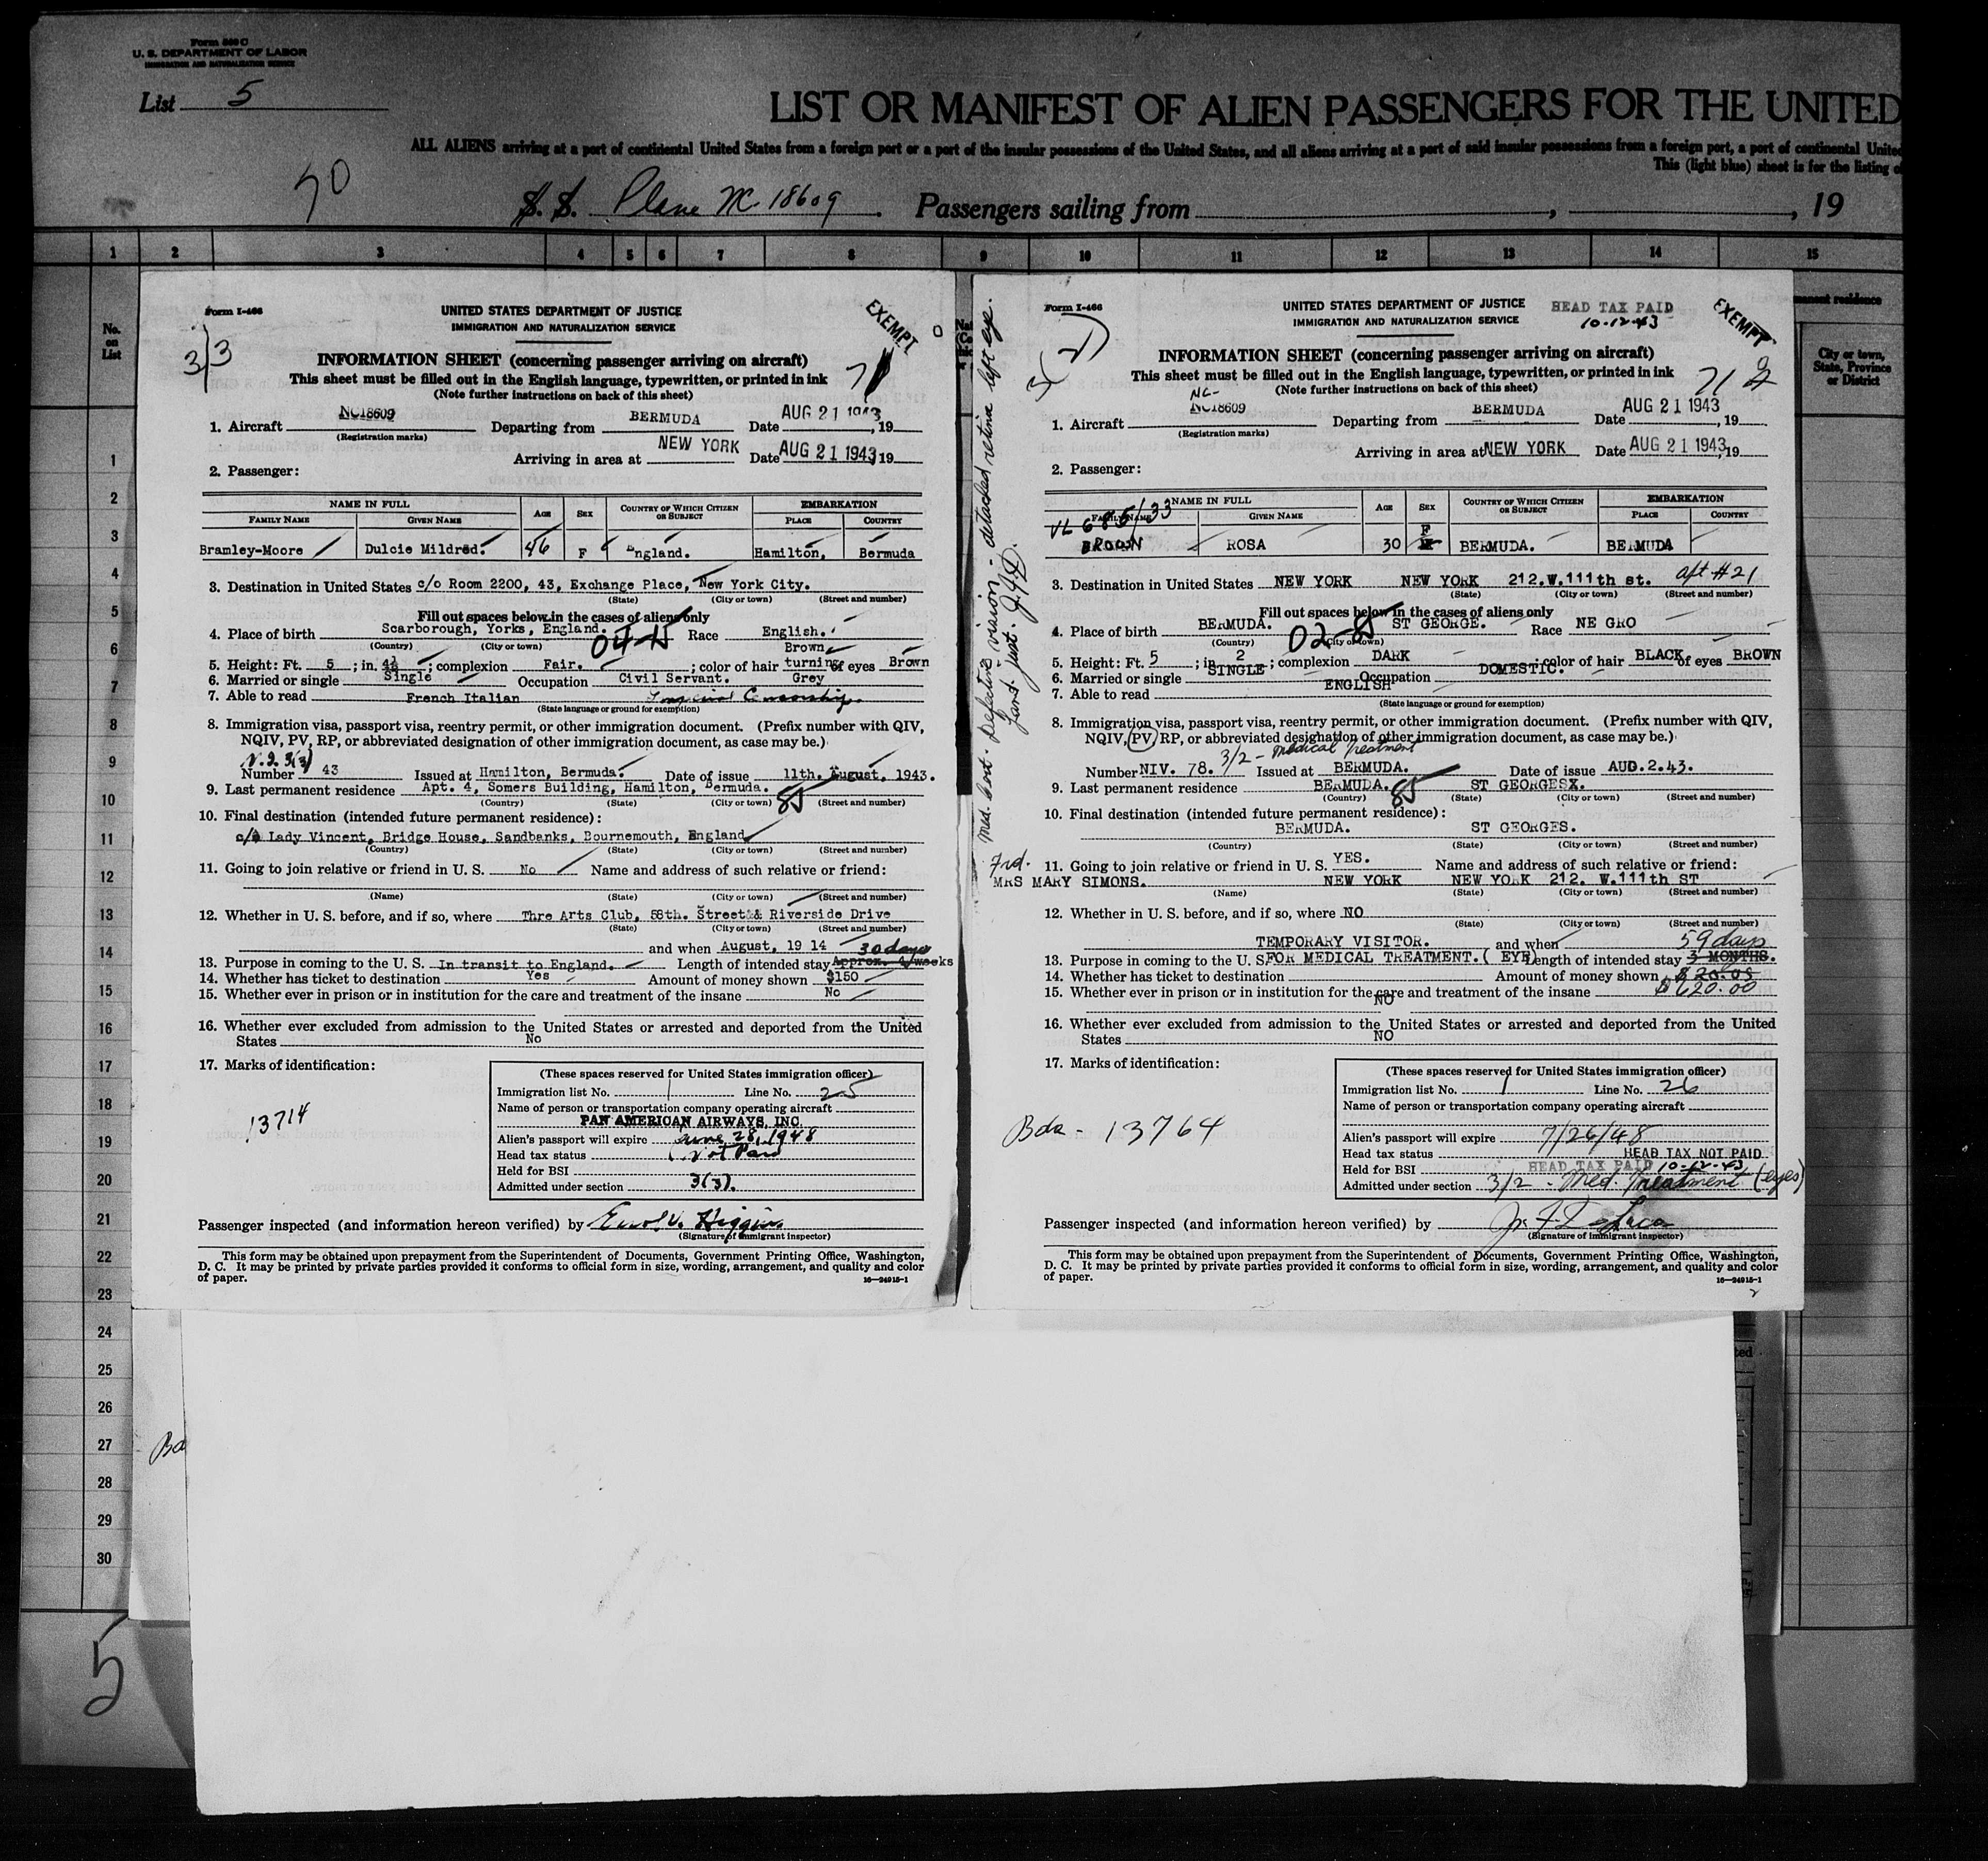 Form 500 C
U. S. DEPARTMENT OF LABOR
IMMIGRATION AND NATURALIZATION SERVICE
List 5
LIST OR MANIFEST OF ALIEN PASSENGERS FOR THE UNITED
ALL ALIENS arriving at a port of continental United States from a foreign port or a port of the insular possessions of the United States, and all aliens arriving at a port of said insular possessions from a foreign port, a port of continental United
This (light blue) sheet is for the listing of
S. S. Plane NC 18609 Passengers sailing from , , 19
1 2 3 4 5 6 7 8 9 10 11 12 13 14 15
No. on List
1
2
3
4
5
6
7
8
9
10
11
12
13
14
15
16
17
18
19
20
21
22
23
24
25
26
27
28
29
30
Bd
5
Form I-466
UNITED STATES DEPARTMENT OF JUSTICE
IMMIGRATION AND NATURALIZATION SERVICE
EXEMPT
3/3
INFORMATION SHEET (concerning passenger arriving on aircraft)
This sheet must be filled out in the English language, typewritten, or printed in ink
(Note further instructions on back of this sheet)
71
1. Aircraft NC18609 Departing from BERMUDA Date AUG 21 1943, 19
(Registration marks)
Arriving in area at NEW YORK Date AUG 21 1943, 19
2. Passenger:
NAME IN FULL AGE SEX COUNTRY OF WHICH CITIZEN OR SUBJECT EMBARKATION
FAMILY NAME GIVEN NAME PLACE COUNTRY
Bramley-Moore Dulcie Mildred. 46 F England. Hamilton, Bermuda
3. Destination in United States c/o Room 2200, 43, Exchange Place, New York City.
(State) (City or town) (Street and number)
Fill out spaces below in the cases of aliens only
4. Place of birth Scarborough, Yorks, England. Race English.
(Country) (City or town)
5. Height: Ft. 5 ; in. 4½ ; complexion Fair. ; color of hair Brown turning Grey of eyes Brown
6. Married or single Single Occupation Civil Servant.
7. Able to read French Italian Imperial Censorship.
(State language or ground for exemption)
8. Immigration visa, passport visa, reentry permit, or other immigration document. (Prefix number with QIV,
NQIV, PV, RP, or abbreviated designation of other immigration document, as case may be.)
Number 43 Issued at Hamilton, Bermuda. Date of issue 11th. August. 1943.
9. Last permanent residence Apt. 4, Somers Building, Hamilton, Bermuda. 85
(Country) (State) (City or town) (Street and number)
10. Final destination (intended future permanent residence):
c/o Lady Vincent, Bridge House, Sandbanks, Bournemouth, England
(Country) (State) (City or town) (Street and number)
11. Going to join relative or friend in U. S. No Name and address of such relative or friend:
(Name) (State) (City or town) (Street and number)
12. Whether in U. S. before, and if so, where Thre Arts Club, 58th. Street & Riverside Drive
(State) (City or town) (Street and number)
and when August, 19 14 30 days
13. Purpose in coming to the U. S. In transit to England. Length of intended stay Approx. 4/weeks
14. Whether has ticket to destination Yes Amount of money shown $150
15. Whether ever in prison or in institution for the care and treatment of the insane No
16. Whether ever excluded from admission to the United States or arrested and deported from the United
States No
17. Marks of identification:
13714
(These spaces reserved for United States immigration officer)
Immigration list No. 1 Line No. 25
Name of person or transportation company operating aircraft
PAN AMERICAN AIRWAYS, INC.
Alien's passport will expire June 28, 1948
Head tax status Not Paid
Held for BSI
Admitted under section 3(3).
Passenger inspected (and information hereon verified) by Errol V. Higgins
(Signature of immigrant inspector)
This form may be obtained upon prepayment from the Superintendent of Documents, Government Printing Office, Washington,
D. C. It may be printed by private parties provided it conforms to official form in size, wording, arrangement, and quality and color
of paper. 16—24915-1
Med. Cert. Defective vision - detached retina left eye.
Form I-466
UNITED STATES DEPARTMENT OF JUSTICE
IMMIGRATION AND NATURALIZATION SERVICE
HEAD TAX PAID
10-12-43
EXEMPT
INFORMATION SHEET (concerning passenger arriving on aircraft)
This sheet must be filled out in the English language, typewritten, or printed in ink
(Note further instructions on back of this sheet)
NC-
1. Aircraft NC18609 Departing from BERMUDA Date AUG 21 1943, 19
(Registration marks)
Arriving in area at NEW YORK Date AUG 21 1943, 19
2. Passenger:
NAME IN FULL AGE SEX COUNTRY OF WHICH CITIZEN OR SUBJECT EMBARKATION
FAMILY NAME GIVEN NAME PLACE COUNTRY
VL 685/33
BROWN ROSA 30 F BERMUDA. BERMUDA
3. Destination in United States NEW YORK NEW YORK 212.W.111th st. apt #21
(State) (City or town) (Street and number)
Fill out spaces below in the cases of aliens only
4. Place of birth BERMUDA. 02-85 ST GEORGE. Race NE GRO
(Country) (City or town)
5. Height: Ft. 5 ; in 2 ; complexion DARK ; color of hair BLACK of eyes BROWN
6. Married or single SINGLE Occupation DOMESTIC.
7. Able to read ENGLISH
(State language or ground for exemption)
8. Immigration visa, passport visa, reentry permit, or other immigration document. (Prefix number with QIV,
NQIV, PV, RP, or abbreviated designation of other immigration document, as case may be.)
3/2 - Medical Treatment
Number NIV. 78. Issued at BERMUDA. Date of issue AUG.2.43.
9. Last permanent residence BERMUDA. 85 ST GEORGESX.
(Country) (State) (City or town) (Street and number)
10. Final destination (intended future permanent residence):
BERMUDA. ST GEORGES.
(Country) (State) (City or town) (Street and number)
Frd. 11. Going to join relative or friend in U. S. YES. Name and address of such relative or friend:
MRS MARY SIMONS. NEW YORK NEW YORK 212. W.111th ST
(Name) (State) (City or town) (Street and number)
12. Whether in U. S. before, and if so, where NO
(State) (City or town) (Street and number)
TEMPORARY VISITOR. and when 59 days
13. Purpose in coming to the U. S. FOR MEDICAL TREATMENT.( EYE) Length of intended stay 3 MONTHS.
14. Whether has ticket to destination Amount of money shown
15. Whether ever in prison or in institution for the care and treatment of the insane $620.00
NO
16. Whether ever excluded from admission to the United States or arrested and deported from the United
States NO
17. Marks of identification:
Bda - 13764
(These spaces reserved for United States immigration officer)
Immigration list No. 1 Line No. 26
Name of person or transportation company operating aircraft
Alien's passport will expire 7/26/48
Head tax status HEAD TAX NOT PAID
Held for BSI HEAD TAX PAID 10-12-43
Admitted under section 3/2 - Med. Treatment (eyes)
Passenger inspected (and information hereon verified) by
(Signature of immigrant inspector)
This form may be obtained upon prepayment from the Superintendent of Documents, Government Printing Office, Washington,
D. C. It may be printed by private parties provided it conforms to official form in size, wording, arrangement, and quality and color
of paper. 16—24915-1
manent residence
City or town, State, Province or District